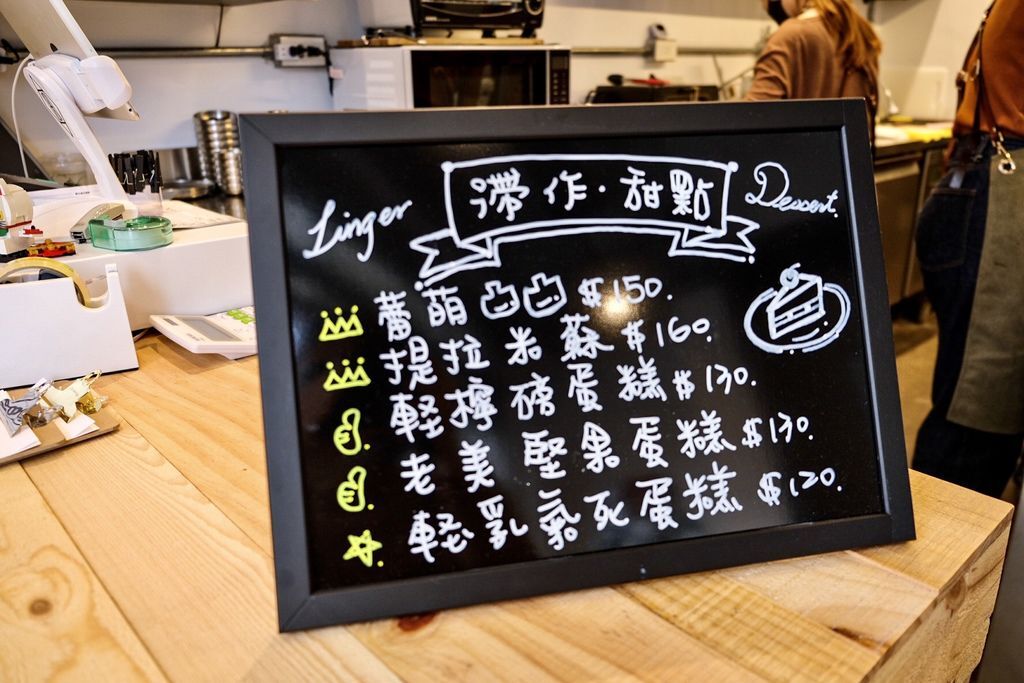 Linger 滯作·甜點 Dessert.
蕃萌凸凸 $150.
提拉米蘇 $160.
輕擰磅蛋糕 $130.
老美堅果蛋糕 $130.
輕乳氣死蛋糕 $120.